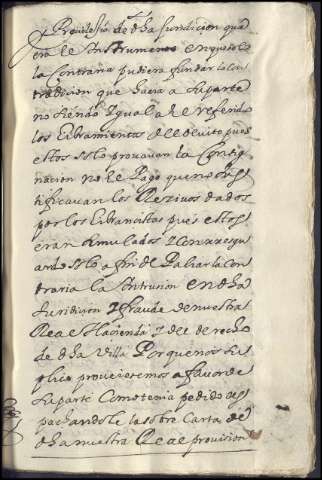 y Previlejio de dha Jurisdicion que
era el Instrumento en que solo
la Contraria pudiera fundar la con
tradicion que hacia a su parte
no siendo Igual a el referido
los Libramientos de el debito pues
estos solo provavan la Consig
nacion no el Pago que no Jus
tificavan los Recivos dados
por los Librancistas pues estos
eran simulados
solo a fin de Paliar la con
traria la Intrusion en dha
Juridicion y fraude de nuestra
Real Hacienda y de el derecho
de dha Villa Porque nos su
plico proveieremos a favor de
su parte Como tenia pedido des
pachandole la sobre Carta de
dha nuestra Real provision